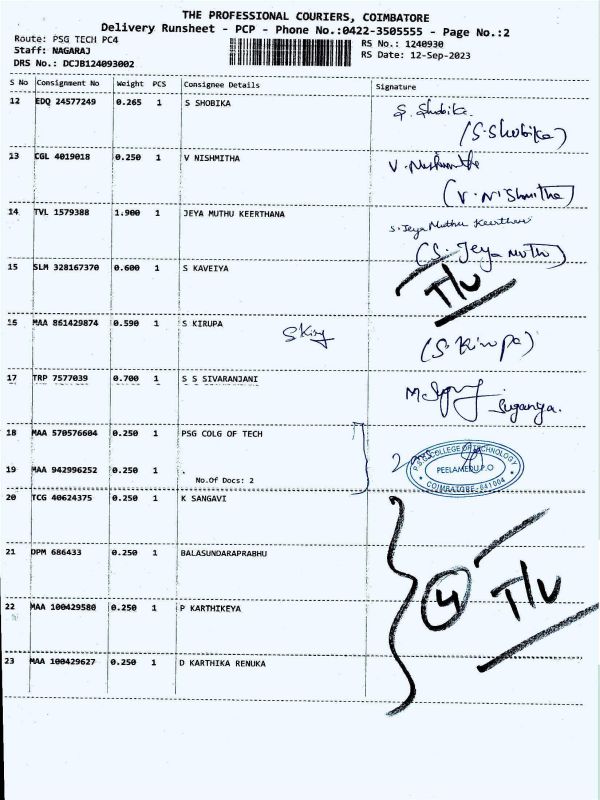 THE PROFESSIONAL COURIERS, COIMBATORE
Delivery Runsheet - PCP - Phone No.:0422-3505555 - Page No.:2
Route: PSG TECH PC4 RS No.: 1240930
Staff: NAGARAJ RS Date: 12-Sep-2023
DRS No.: DCJB124093002
S No Consignment No Weight PCS Consignee Details Signature
12 EDQ 24577249 0.265 1 S SHOBIKA S. Shobika
(S.Shobika)
13 CGL 4019018 0.250 1 V NISHMITHA V. Nishmitha
(V.Nishmitha)
14 TVL 1579388 1.900 1 JEYA MUTHU KEERTHANA S.Jeya Muthu Keerthan
(S. Jeya Muthu)
15 SLM 328167370 0.600 1 S KAVEIYA T/U
16 MAA 861429874 0.590 1 S KIRUPA (S.Kirupa)
17 TRP 7577039 0.700 1 S S SIVARANJANI
Suganya.
18 MAA 570576604 0.250 1 PSG COLG OF TECH
P.S.G. COLLEGE OF TECHNOLOGY
PEELAMEDU P.O
COIMBATORE-641004
19 MAA 942996252 0.250 1 .
No.Of Docs: 2
20 TCG 40624375 0.250 1 K SANGAVI
21 DPM 686433 0.250 1 BALASUNDARAPRABHU
4 T/U
22 MAA 100429580 0.250 1 P KARTHIKEYA
23 MAA 100429627 0.250 1 D KARTHIKA RENUKA